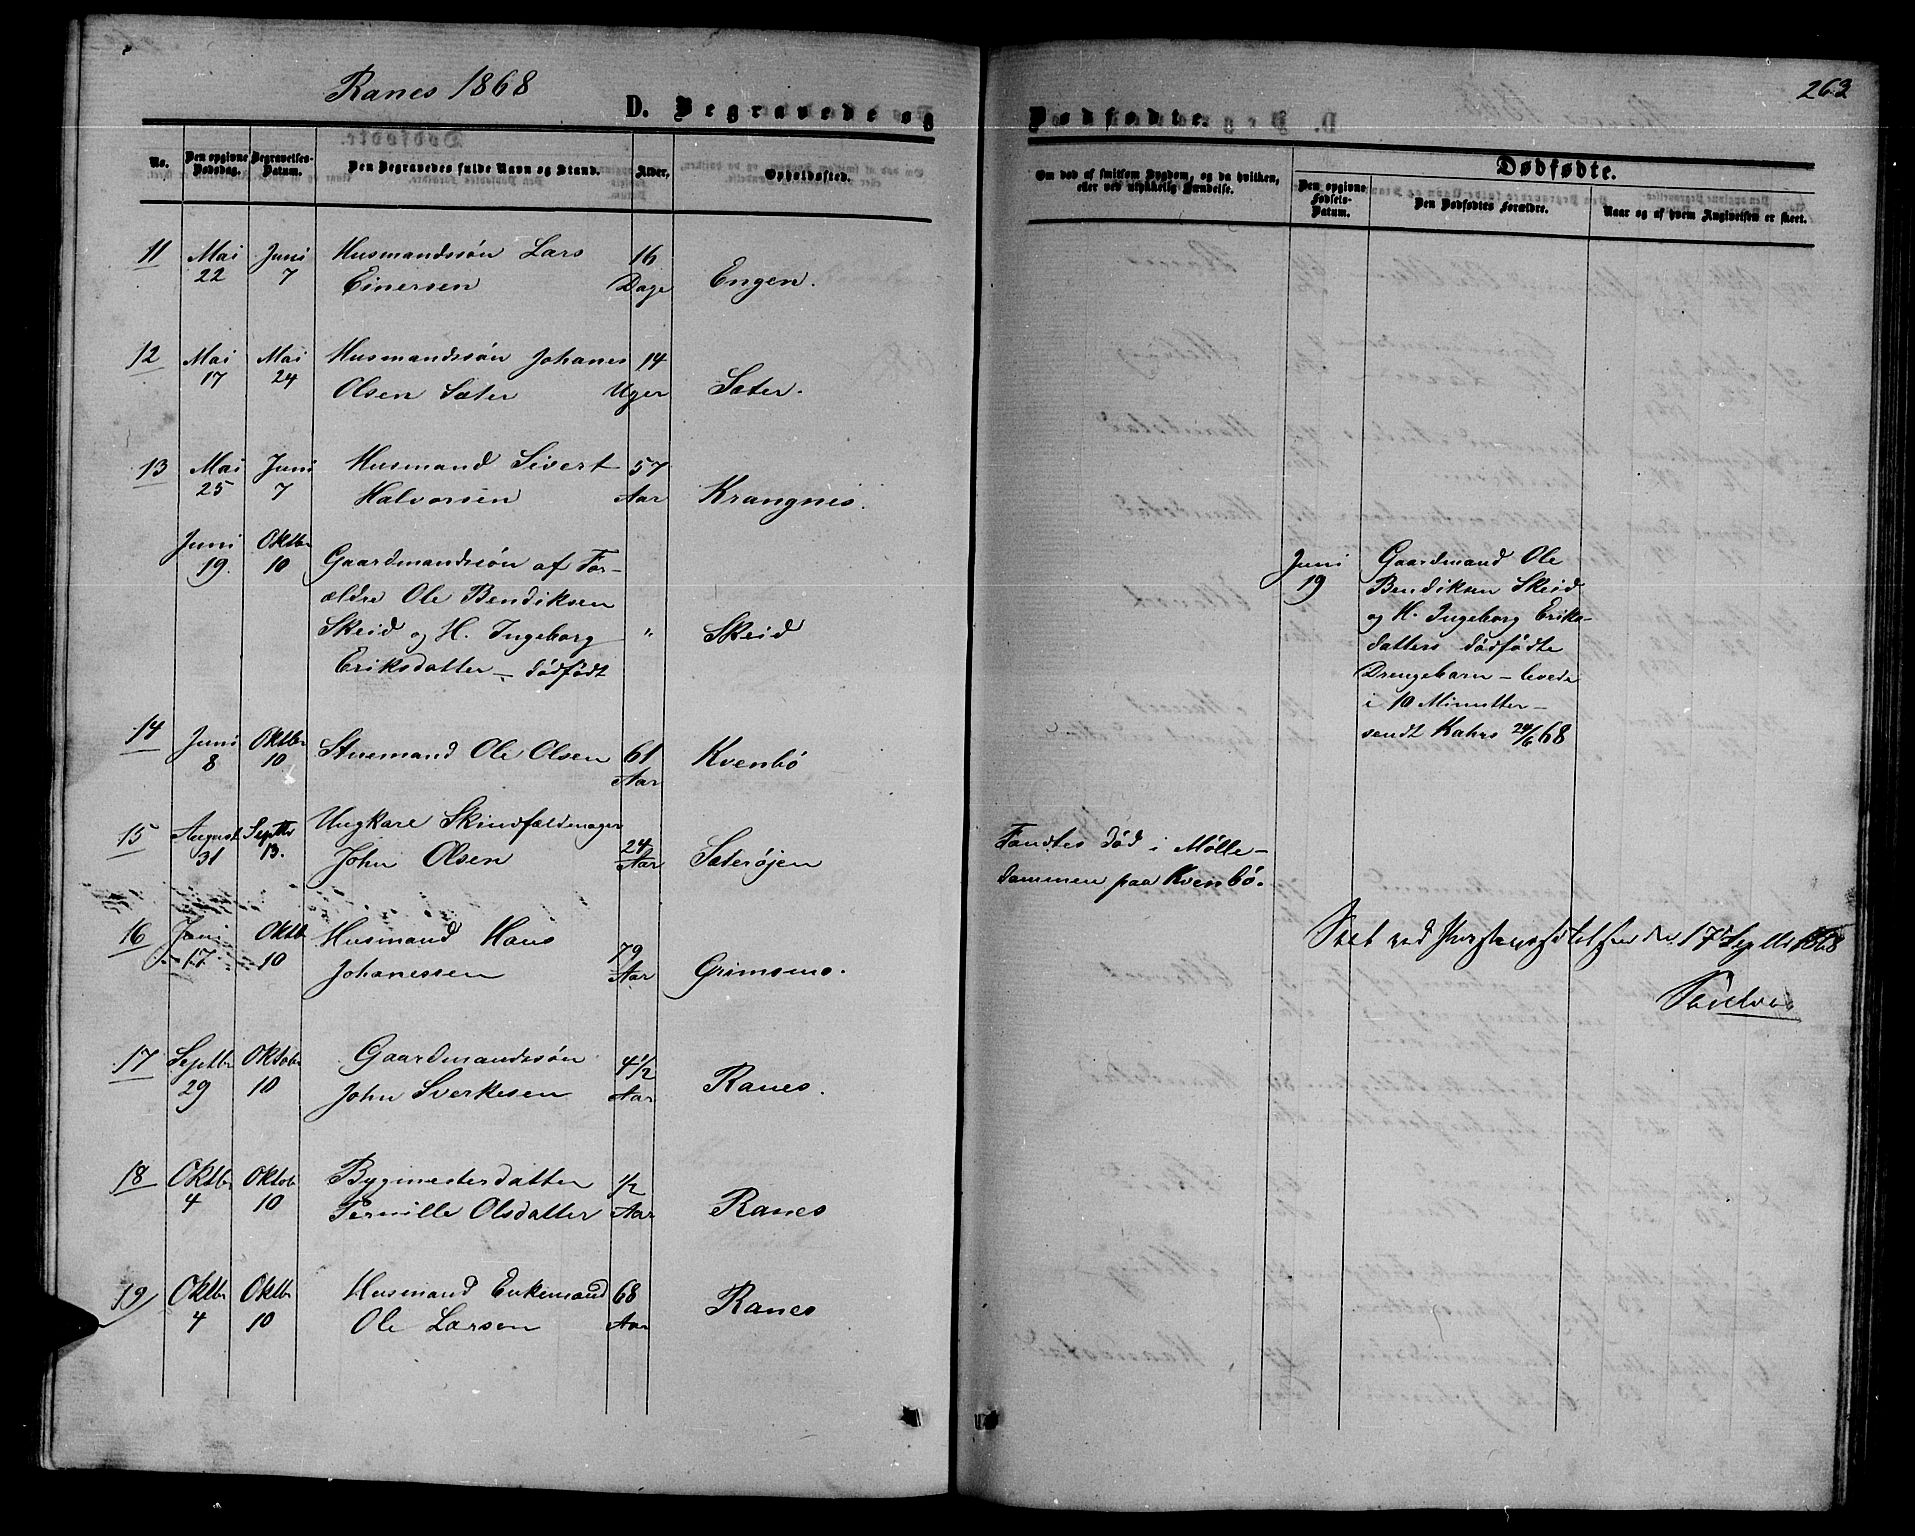 Ranes 1868
263
D. Begravede og
Dødfødte.
No.
Den opgivne Dødsdag.
Begravelses-Datum.
Den Begravedes fulde Navn og Stand.
Alder.
Opholdssted.
Om død af smitsom Sygdom, og da hvilken,
eller ved ulykkelig Hændelse.
Dødfødte.
Den opgivne Fødsels-Datum.
Den Dødfødtes Forældre.
Naar og af hvem Angivelsen er skeet.
11 Mai 22 Juni 7 Husmandssøn Lars 16
Einersen Dage Engen.
12 Mai 17 Mai 24 Husmandssøn Johanes 14
Olsen Sæter Uger Sæter.
13 Mai 25 Juni 7 Husmand Sivert 57
Halvorsen Aar Krangnes.
Juni 19. Oktbr 10 Gaardmandssøn af For-
ældre Ole Bendiksen
Skeid og H. Ingeborg " Skeid
Eriksdatter – dødfødt
Juni 19
Gaardmand Ole
Bendiksen Skeid
og H. Ingeborg Eriks-
datters dødfødte
Drengebarn – levede
i 10 Minutter –
sendt Kahrs 24/6 68
14 Juni 8 Oktbr 10 Stuemand Ole Olsen 61 Aar Kvenbø
15 August 31 Septbr 13. Ungkarl Skindfældmager
John Olsen 24 Aar Sæterøjen
Fandtes død i Mølle-
dammen paa Kvenbø.
16 Juni 17 Oktb 10 Husmand Hans 79
Johanessen Aar Grimsmo.
Seet ved den 17de Septbr 1868
17 Septbr 29 Oktober 10 Gaardmandssøn 4 1/2
John Sverkesen Aar Ranes.
18 Oktbr 4 Oktob 10 Bygmesterdatter 1/2
Pernille Olsdatter Aar Ranes
19 Oktbr 4 Oktbr 10 Husmand Enkemand 68
Ole Larsen Aar Ranes